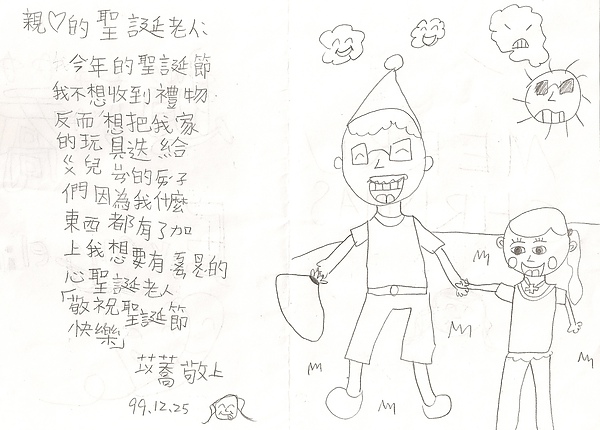 親♡的聖誕老人:
今年的聖誕節
我不想收到禮物.
反而想把我家
的玩具送給
兒 的 子
們因為我什麼
東西都有了加
上我想要有 的
心聖誕老人
「敬祝聖誕節
快樂」
苡蕎敬上
99.12.25